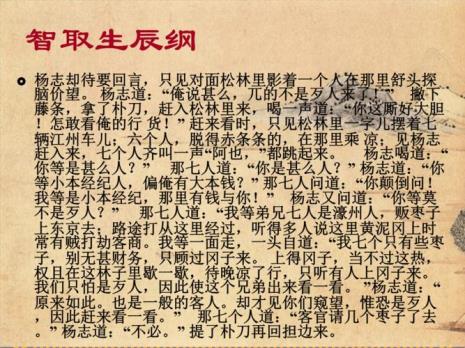 智取生辰纲
杨志却待要回言，只见对面松林里影着一个人在那里舒头探
脑价望。 杨志道：“俺说甚么，兀的不是歹人来了！” 撇下
藤条，拿了朴刀，赶入松林里来，喝一声道：“你这厮好大胆
！怎敢看俺的行 货！”赶来看时，只见松林里一字儿摆着七
辆江州车儿；六个人，脱得赤条条的，在那里乘 凉；见杨志
赶入来，七个人齐叫一声“阿也，”都跳起来。 杨志喝道：“
你等是甚么人？” 那七人道：“你是甚么人？”杨志道：“你
等小本经纪人，偏俺有大本钱？”那七人问道：“你颠倒问！
我等是小本经纪，那里有钱与你！” 杨志又问道：“你等莫
不是歹人？” 那七人道：“我等弟兄七人是濠州人，贩枣子
上东京去；路途打从这里经过，听得多人说这里黄泥冈上时
常有贼打劫客商。我等一面走，一头自道：“我七个只有些枣
子，别无甚财务，只顾过冈子来。 上得冈子，当不过这热，
权且在这林子里歇一歇，待晚凉了行，只听有人上冈子来。
我们只怕是歹人，因此使这个兄弟出来看一看。 ”杨志道：“
原来如此。也是一般的客人。却才见你们窥望，惟恐是歹人
，因此赶来看一看。” 那七个人道：“客官请几个枣子了去
。” 杨志道：“不必。”提了朴刀再回担边来。